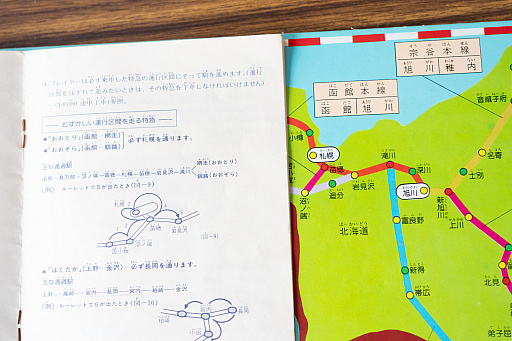 プレイヤーは必ず乗車した特急の運行区間にそって駒を進めます。(運行
区間をはずれて進みたいときは、その特急を下車しなければいけません)
むずかしい運行区間を走る特急
★「おおとり」(函館—網走)
★「おおぞら」(函館—釧路)
必ず札幌を通ります。
主な通過駅
函館—長万部—沼ノ端—苗穂—札幌—苗穂—岩見沢—滝川
網走(おおとり)
釧路(おおぞら)
(例) ルーレットで5が出たとき(図—9)
札幌
苗穂
岩見沢
苫小牧
沼ノ端
(図—9)
★「はくたか」(上野—金沢) 必ず長岡を通ります。
主な通過駅
上野—高崎—宮内—長岡—宮内—柏崎—金沢
(例) ルーレットで5が出たとき(図—10)
柏崎
宮内
長岡
小出
宗谷本線
旭川 稚内
函館本線
函館 旭川
音威子府
小樽
札幌
滝川
名寄
苗穂
深川
士別
追分
岩見沢
旭川
沼ノ端
新旭川
上川
富良野
北海道
ほっかいどう
新得
北見
帯広
弟子屈